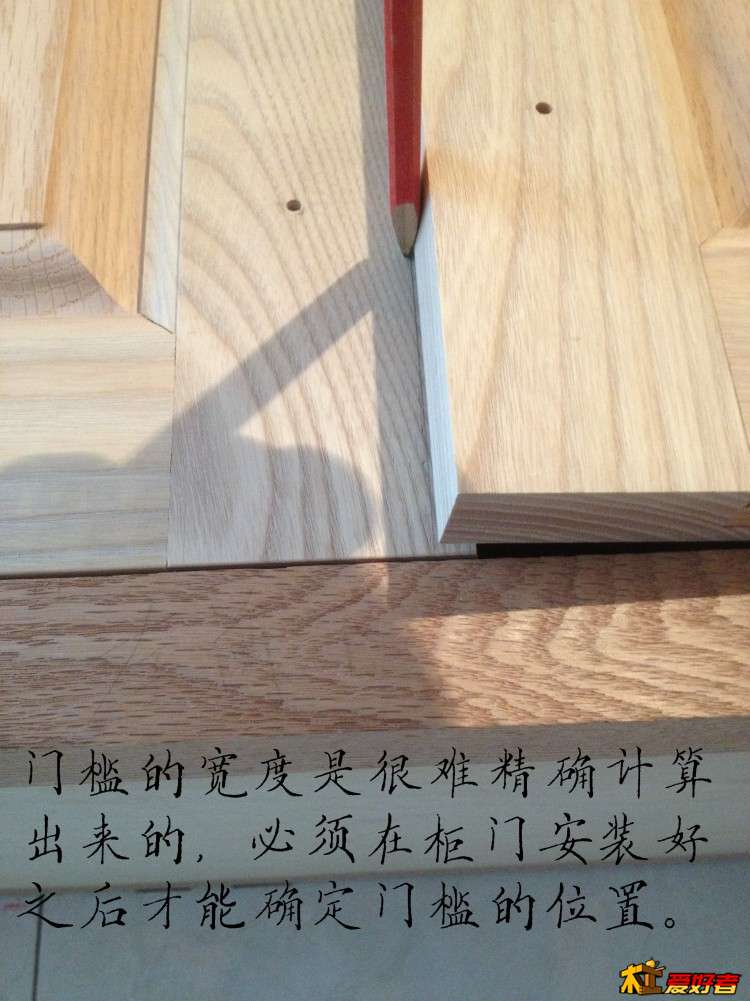 门槛的宽度是很难精确计算
出来的，必须在柜门安装好
之后才能确定门槛的位置。
木工爱好者